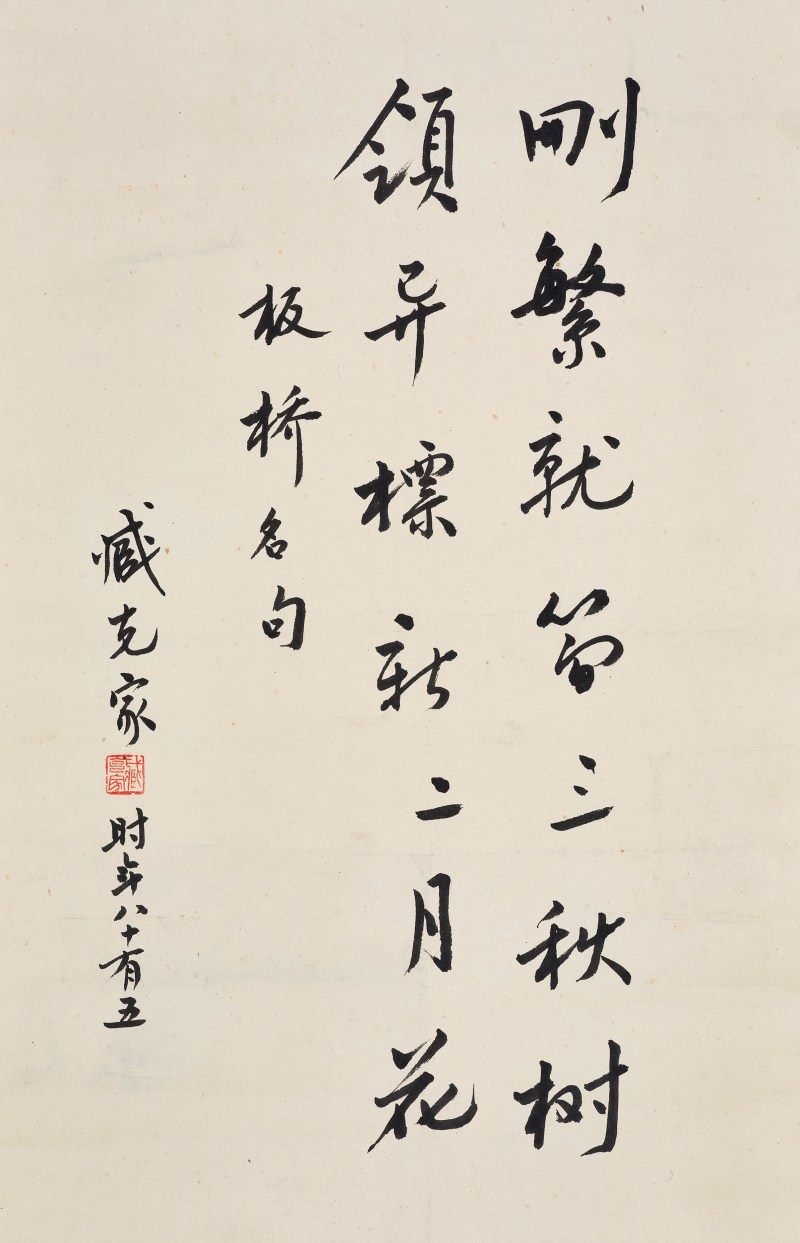 删繁就简三秋树
领异标新二月花
板桥名句
臧克家
时年八十有五